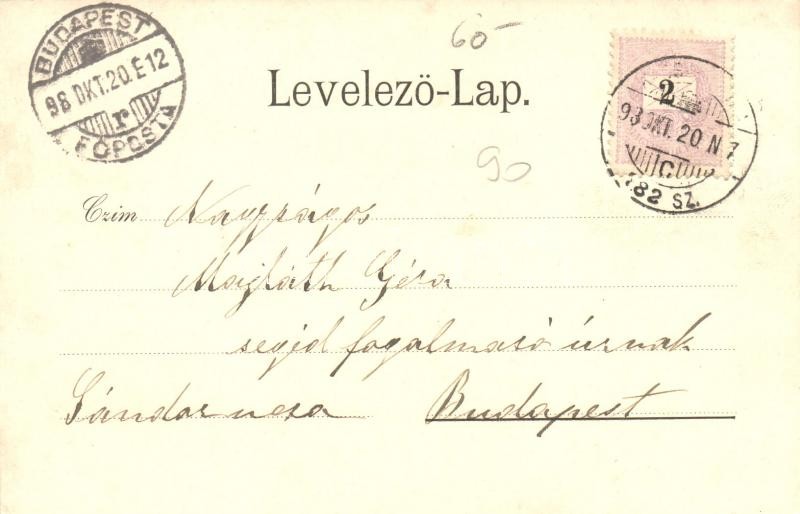 BUDAPEST
98 OKT. 20. E 12
r
FŐPOSTA
60
Levelező-Lap.
2
98 OKT. 20 N 7
C
82 SZ.
90
Czim Nagyságos
Majláth Géza
segéd fogalmazó úrnak
Sándor ucza Budapest